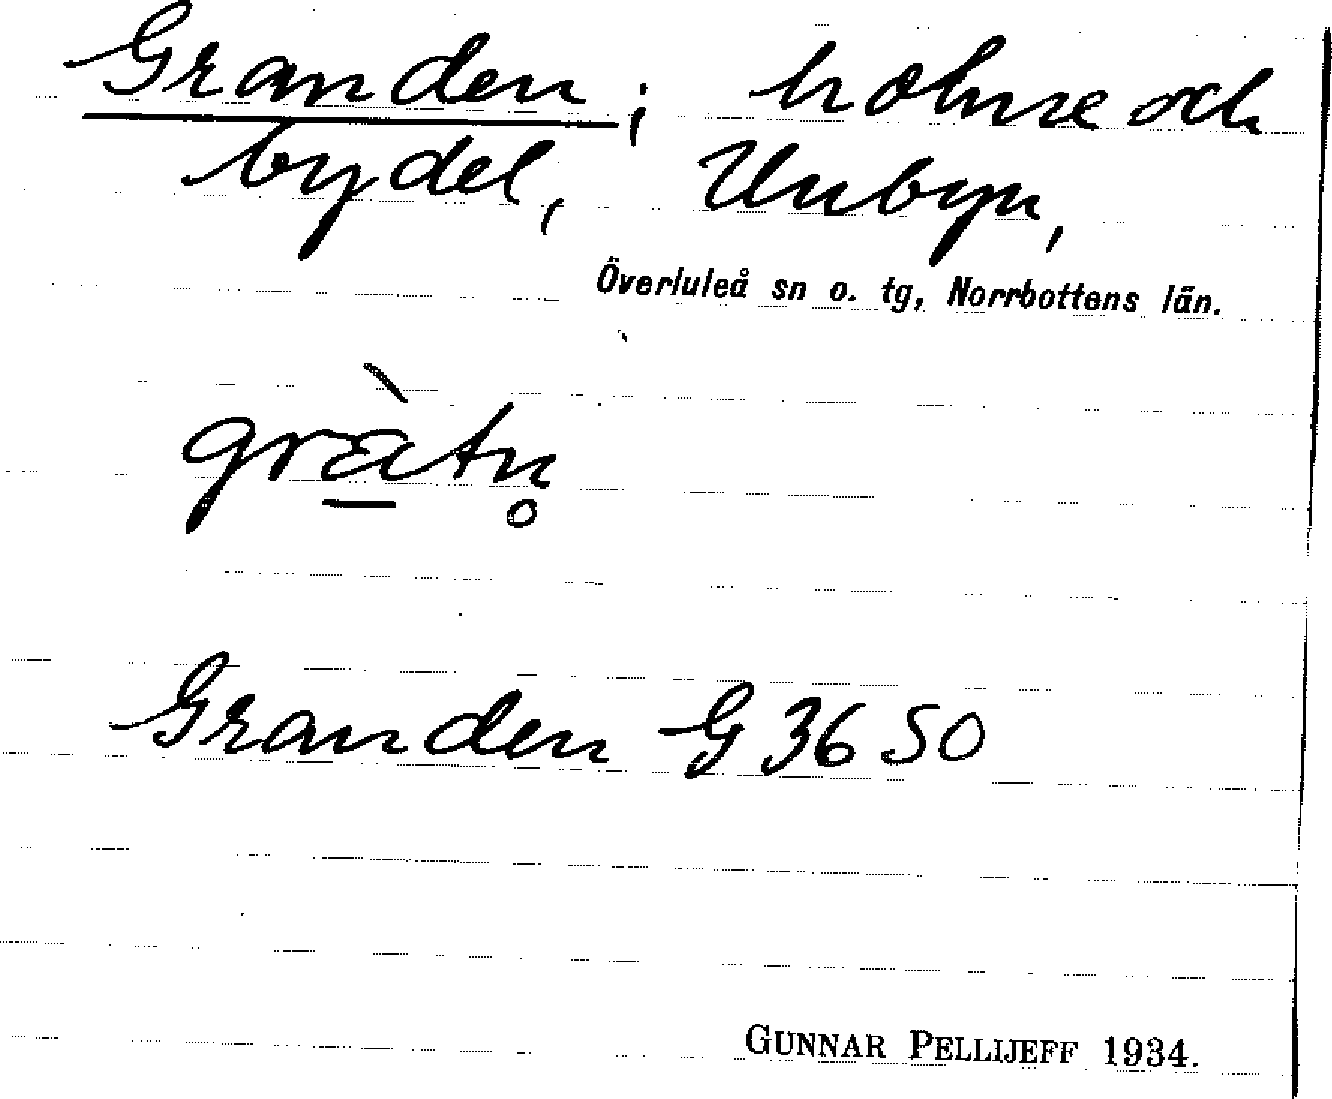 Granden; holme och
bydel, Unbyn,
Överluleå sn o. tg, Norrbottens län.
grà̱tn̥
Granden G 3650
GUNNAR PELLIJEFF 1934.